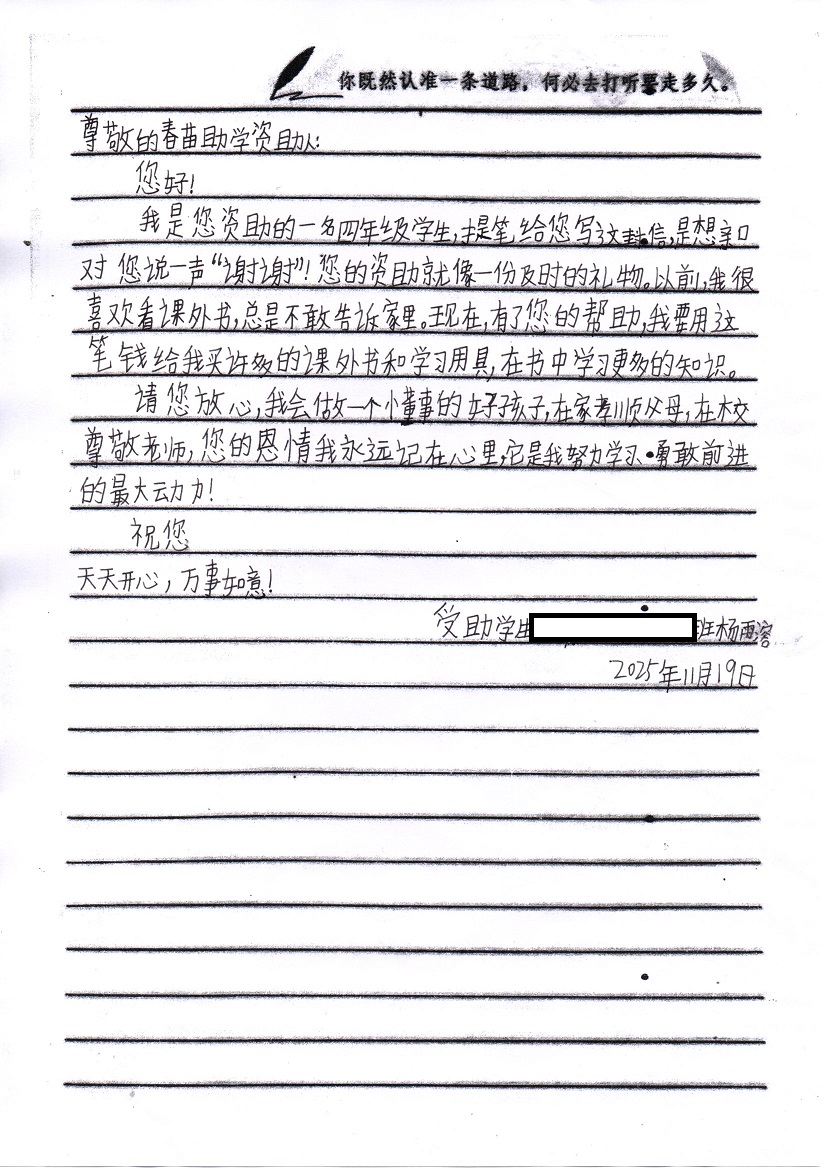 你既然认准一条道路，何必去打听要走多久。
尊敬的春苗助学资助人:
您好!
我是您资助的一名四年级学生,提笔给您写这封信,是想亲口
对您说一声“谢谢”!您的资助就像一份及时的礼物。以前,我很
喜欢看课外书,总是不敢告诉家里。现在,有了您的帮助,我要用这
笔钱给我买许多的课外书和学习用具,在书中学习更多的知识。
请您放心,我会做一个懂事的好孩子,在家孝顺父母,在校
尊敬老师,您的恩情我永远记在心里,它是我努力学习、勇敢前进
的最大动力!
祝您
天天开心，万事如意!
受助学生 班杨雨溶
2025年11月19日